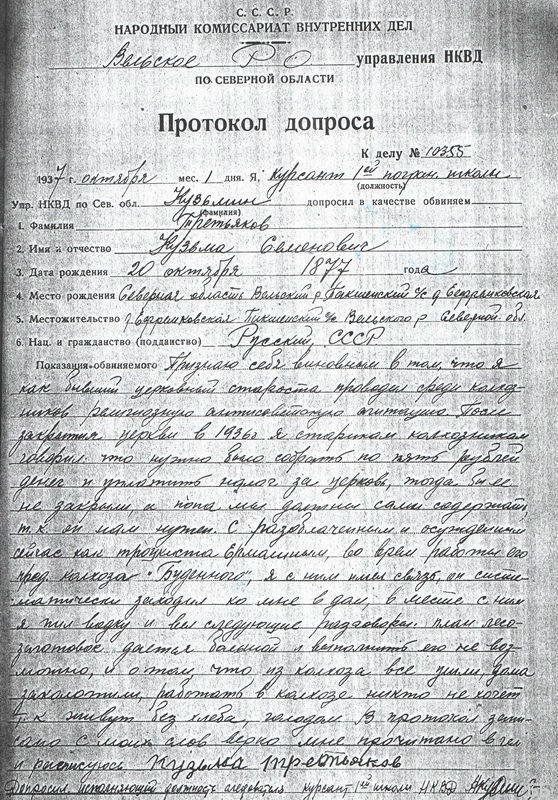 С. С. С. Р.
НАРОДНЫЙ КОМИССАРИАТ ВНУТРЕННИХ ДЕЛ
Вельское РО управления НКВД
ПО СЕВЕРНОЙ ОБЛАСТИ
Протокол допроса
К делу № 10355
1937 г. октября мес. 1 дня. Я, курсант 1ой погран. школы
(должность)
Упр. НКВД по Сев. обл. Кузьмин допросил в качестве обвиняем
(фамилия)
1. Фамилия Третьяков
2. Имя и отчество Кузьма Семенович
3. Дата рождения 20 октября 1877 года
4. Место рождения Северная область Вельский р Пакшенский с/с д Ефремковская
5. Местожительство д Ефремковская Пакшенский с/с Вельского р Северной обл.
6. Нац. и гражданство (подданство) Русский, СССР
Показания обвиняемого Признаю себя виновным в том, что я
как бывший церковный староста проводил среди колхоз-
ников религиозную антисоветскую агитацию После
закрытия церкви в 1936г я старикам колхозникам
говорил что нужно было собрать по пять рублей
денег и уплатить налог за церковь, тогда бы ее
не закрыли и попа мы должны сами содержать,
т.к. он нам нужен. С разоблаченным и осужденным
сейчас как троцкиста Ермашным, во врем работы его
пред. колхоза "Буденного", я с ним имел связь, он систе-
матически заходил ко мне в дом, в месте с ним
я пил водку и вел следующие разговоры: план лесо-
заготовок дается большой и выполнить его не воз-
можно, и о том, что из колхоза все ушли, дома
заколотили, работать в колхозе никто не хочет
т.к живут без хлеба, голодом В протокол запи-
сано с моих слов верно мне прочитано в чем
и расписуюсь Кузьма Третьяков
Допросил исполняющий должность следователя курсант 1ой школы НКВД